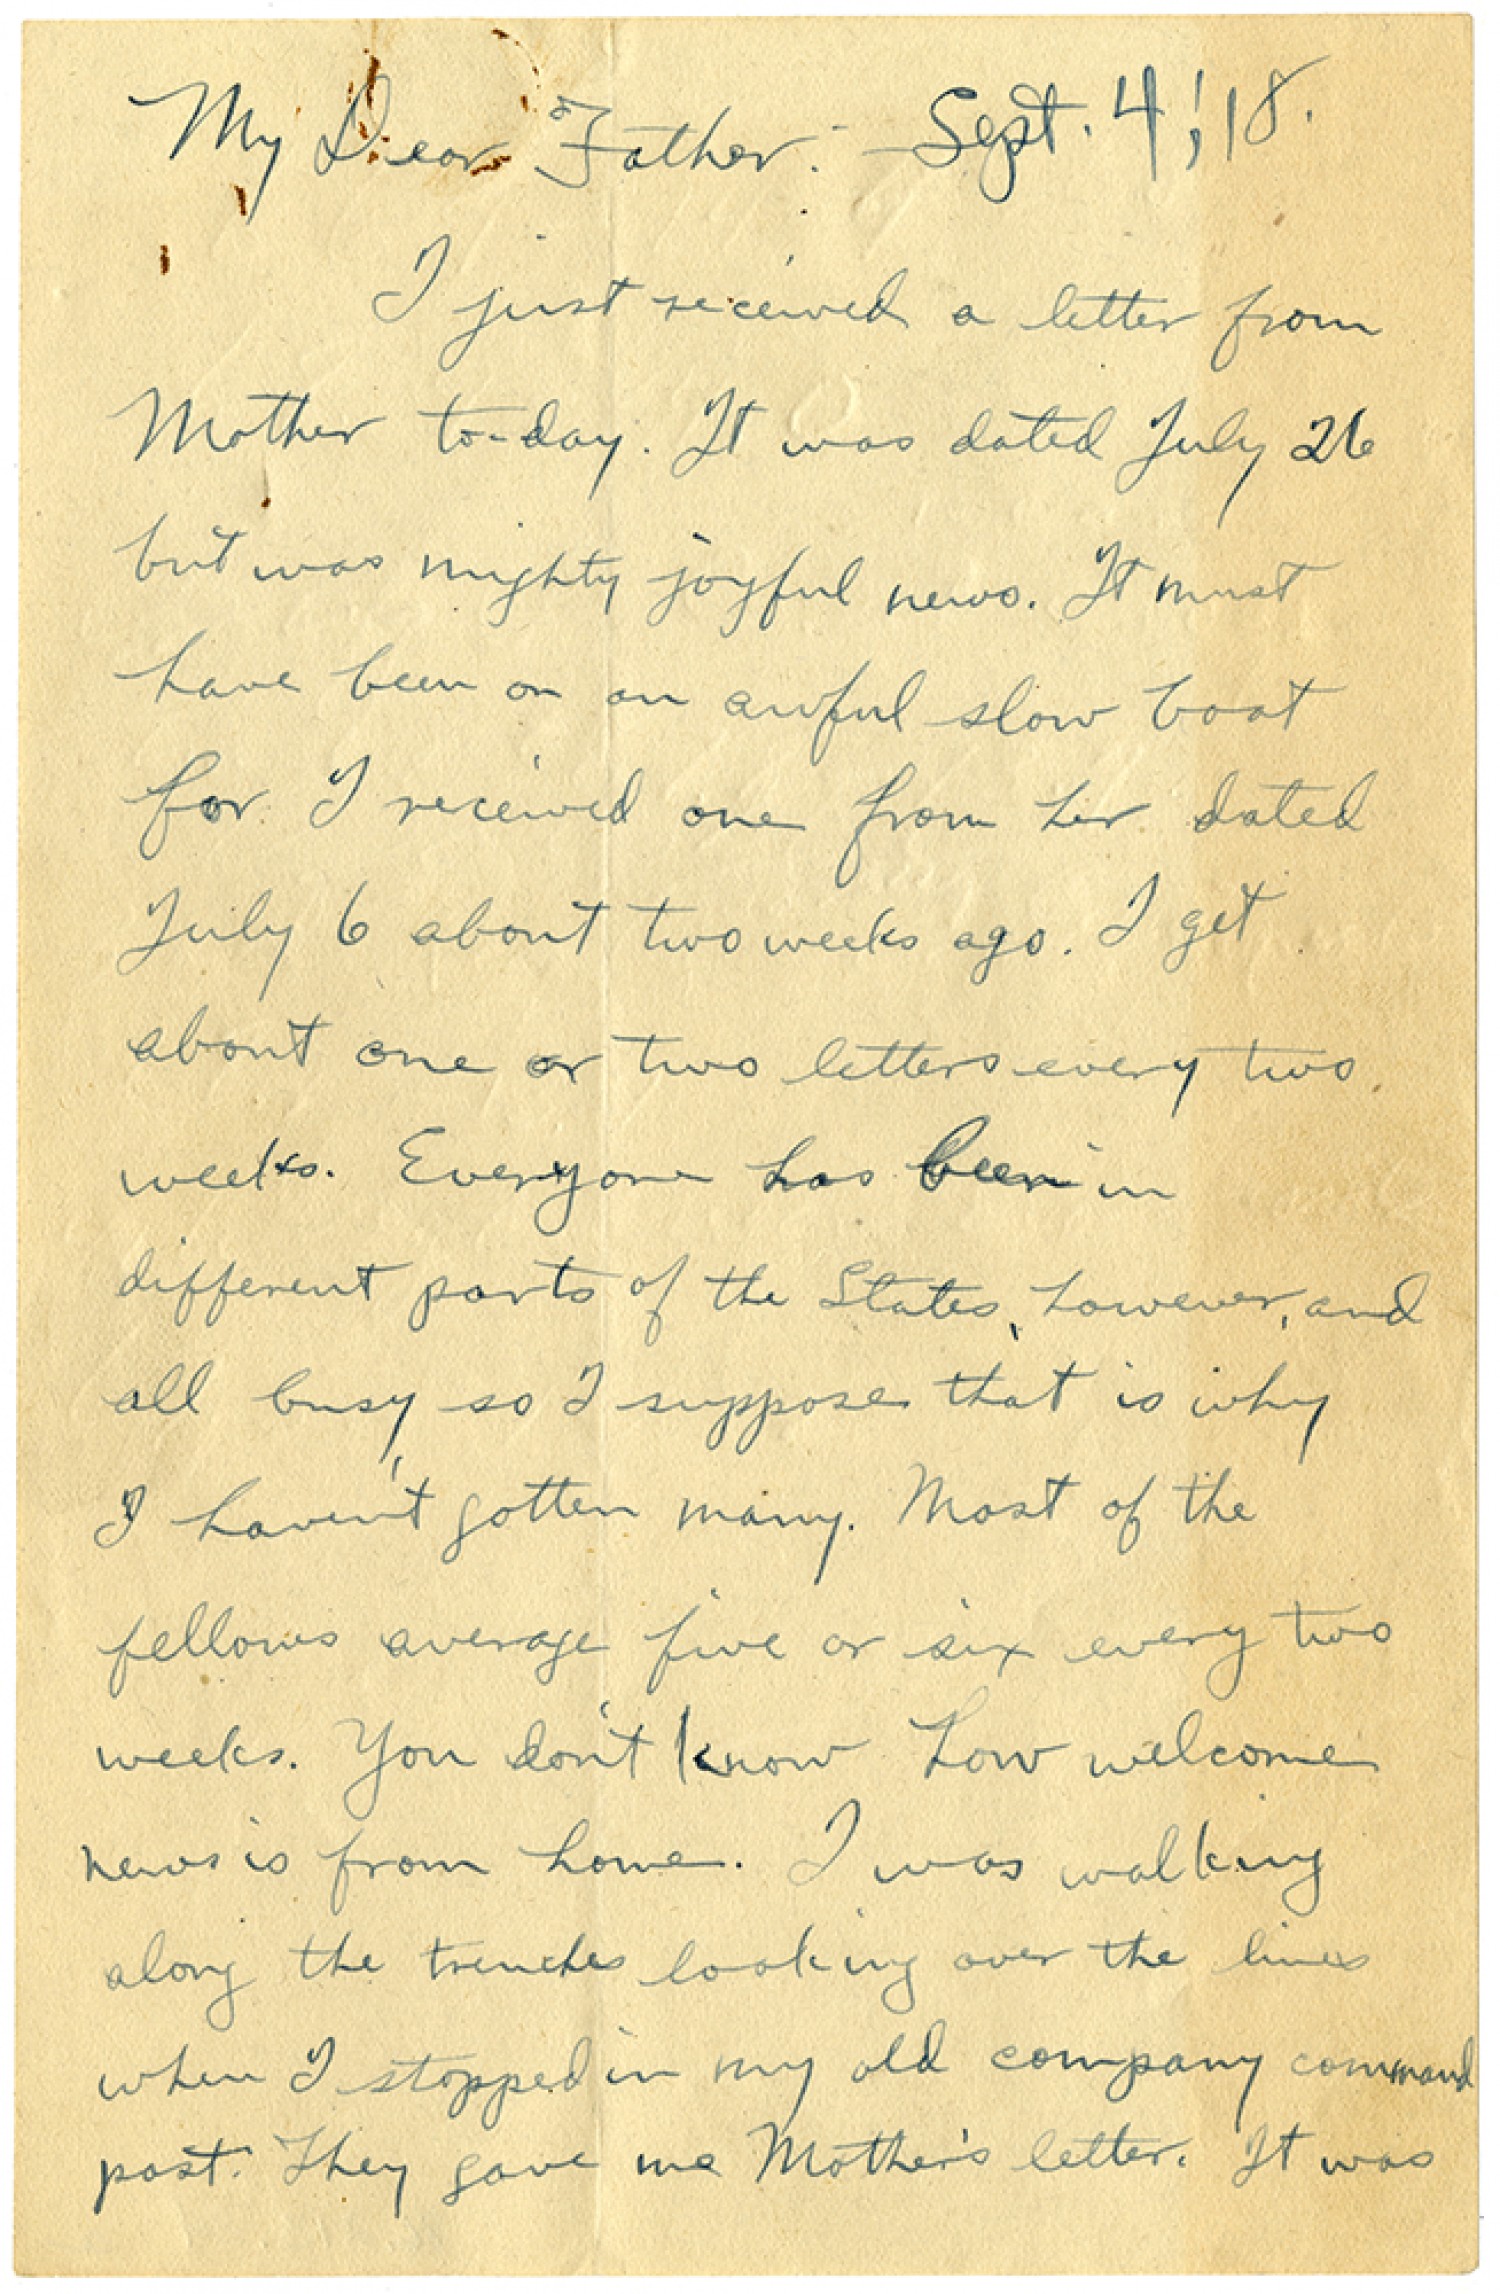 My Dear Father:- Sept. 4, '18.
I just received a letter from
Mother to-day. It was dated July 26
but was mighty joyful news. It must
have been on an awful slow boat
for I received one from her dated
July 6 about two weeks ago. I get
about one or two letters every two
weeks. Everyone has been in
different parts of the States, however, and
all busy so I suppose that is why
I haven't gotten many. Most of the
fellows average five or six every two
weeks. You don't know how welcome
news is from home. I was walking
along the trenches looking over the lines
when I stopped in my old company command
post. They gave me Mother's letter. It was